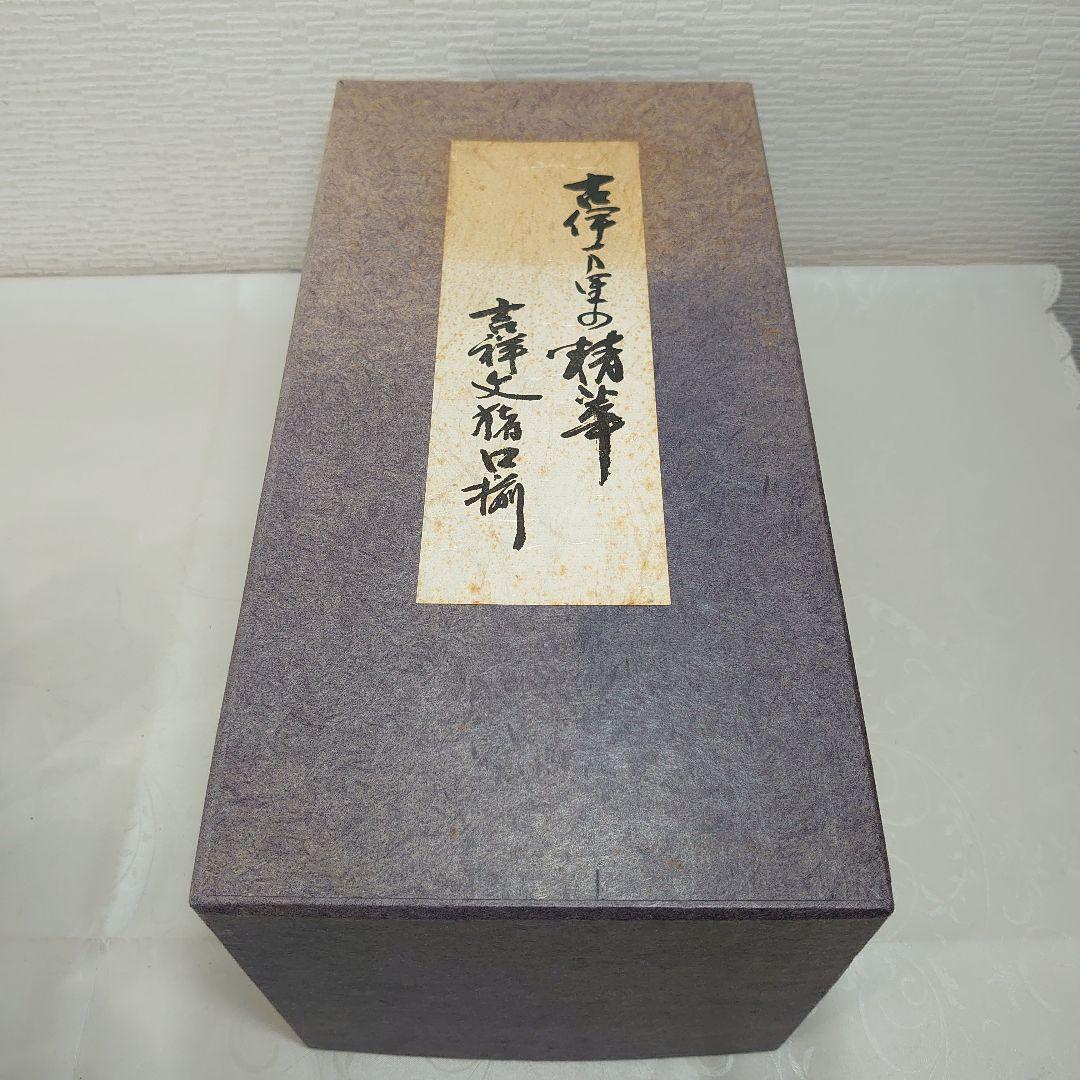 古伊万里の精華
吉祥文猪口揃